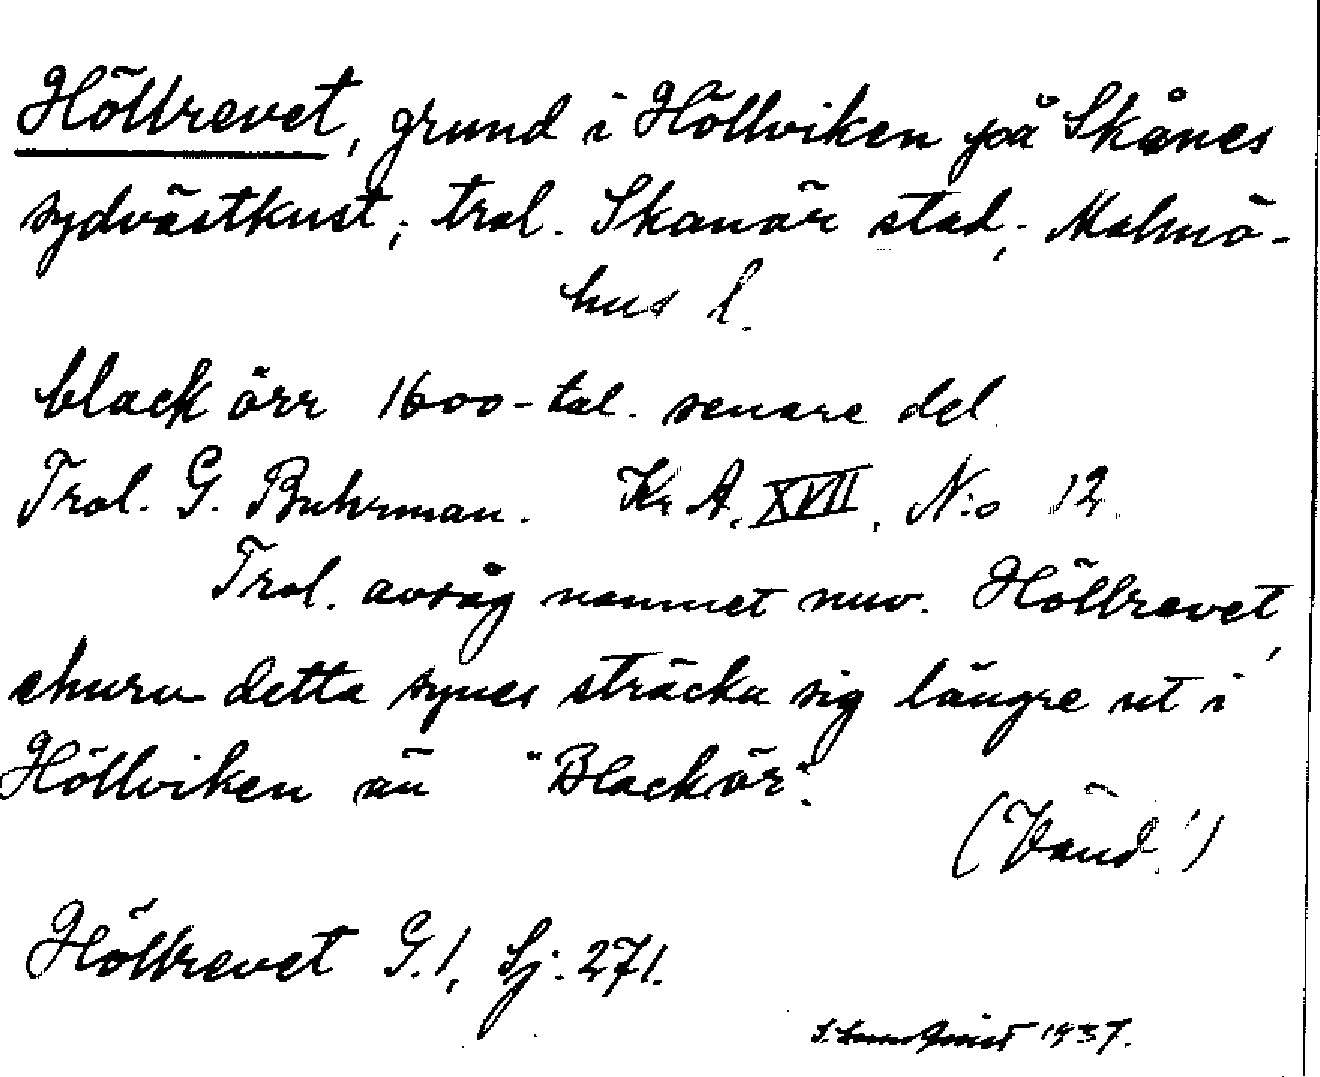 Höllrevet, grund i Höllviken på Skånes
sydvästkust, trol. Skanör stad, Malmö-
hus l.
black örr 1600-tal. senare del
Trol. G. Buhrman. Kr. A. XVII, N:o 12.
Trol. avsåg namnet nuv. Höllrevet,
ehuru detta synes sträcka sig längre ut i
Höllviken än "Blackör".
(Vänd!)
Höllrevet G.1, Sj. 271.
1937.